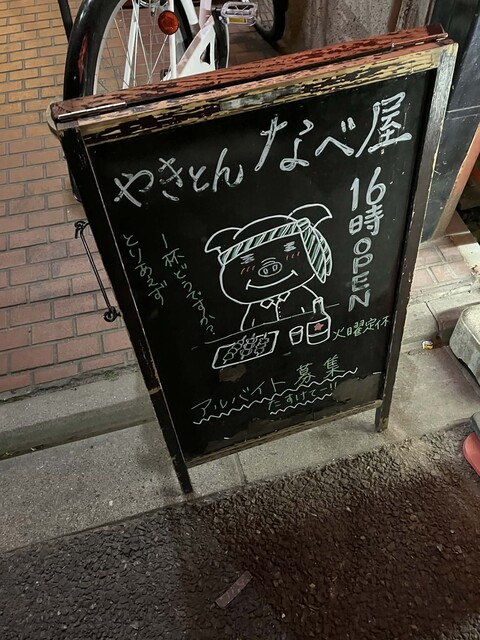 やきとん なべ屋
16時OPEN
火曜定休
とりあえず
一杯どうですか?
アルバイト募集
たすけてー!!